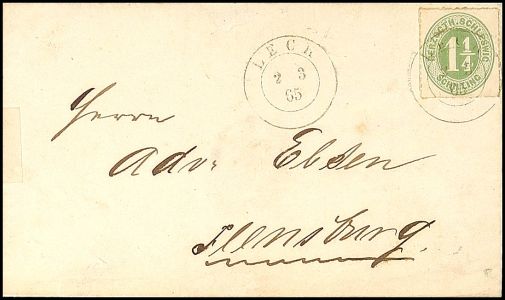 LECK
2 3
65
HERZOGTH. SCHLESWIG
1 1/4
SCHILLING
Herrn
Adv. Ebsen
Flensburg.